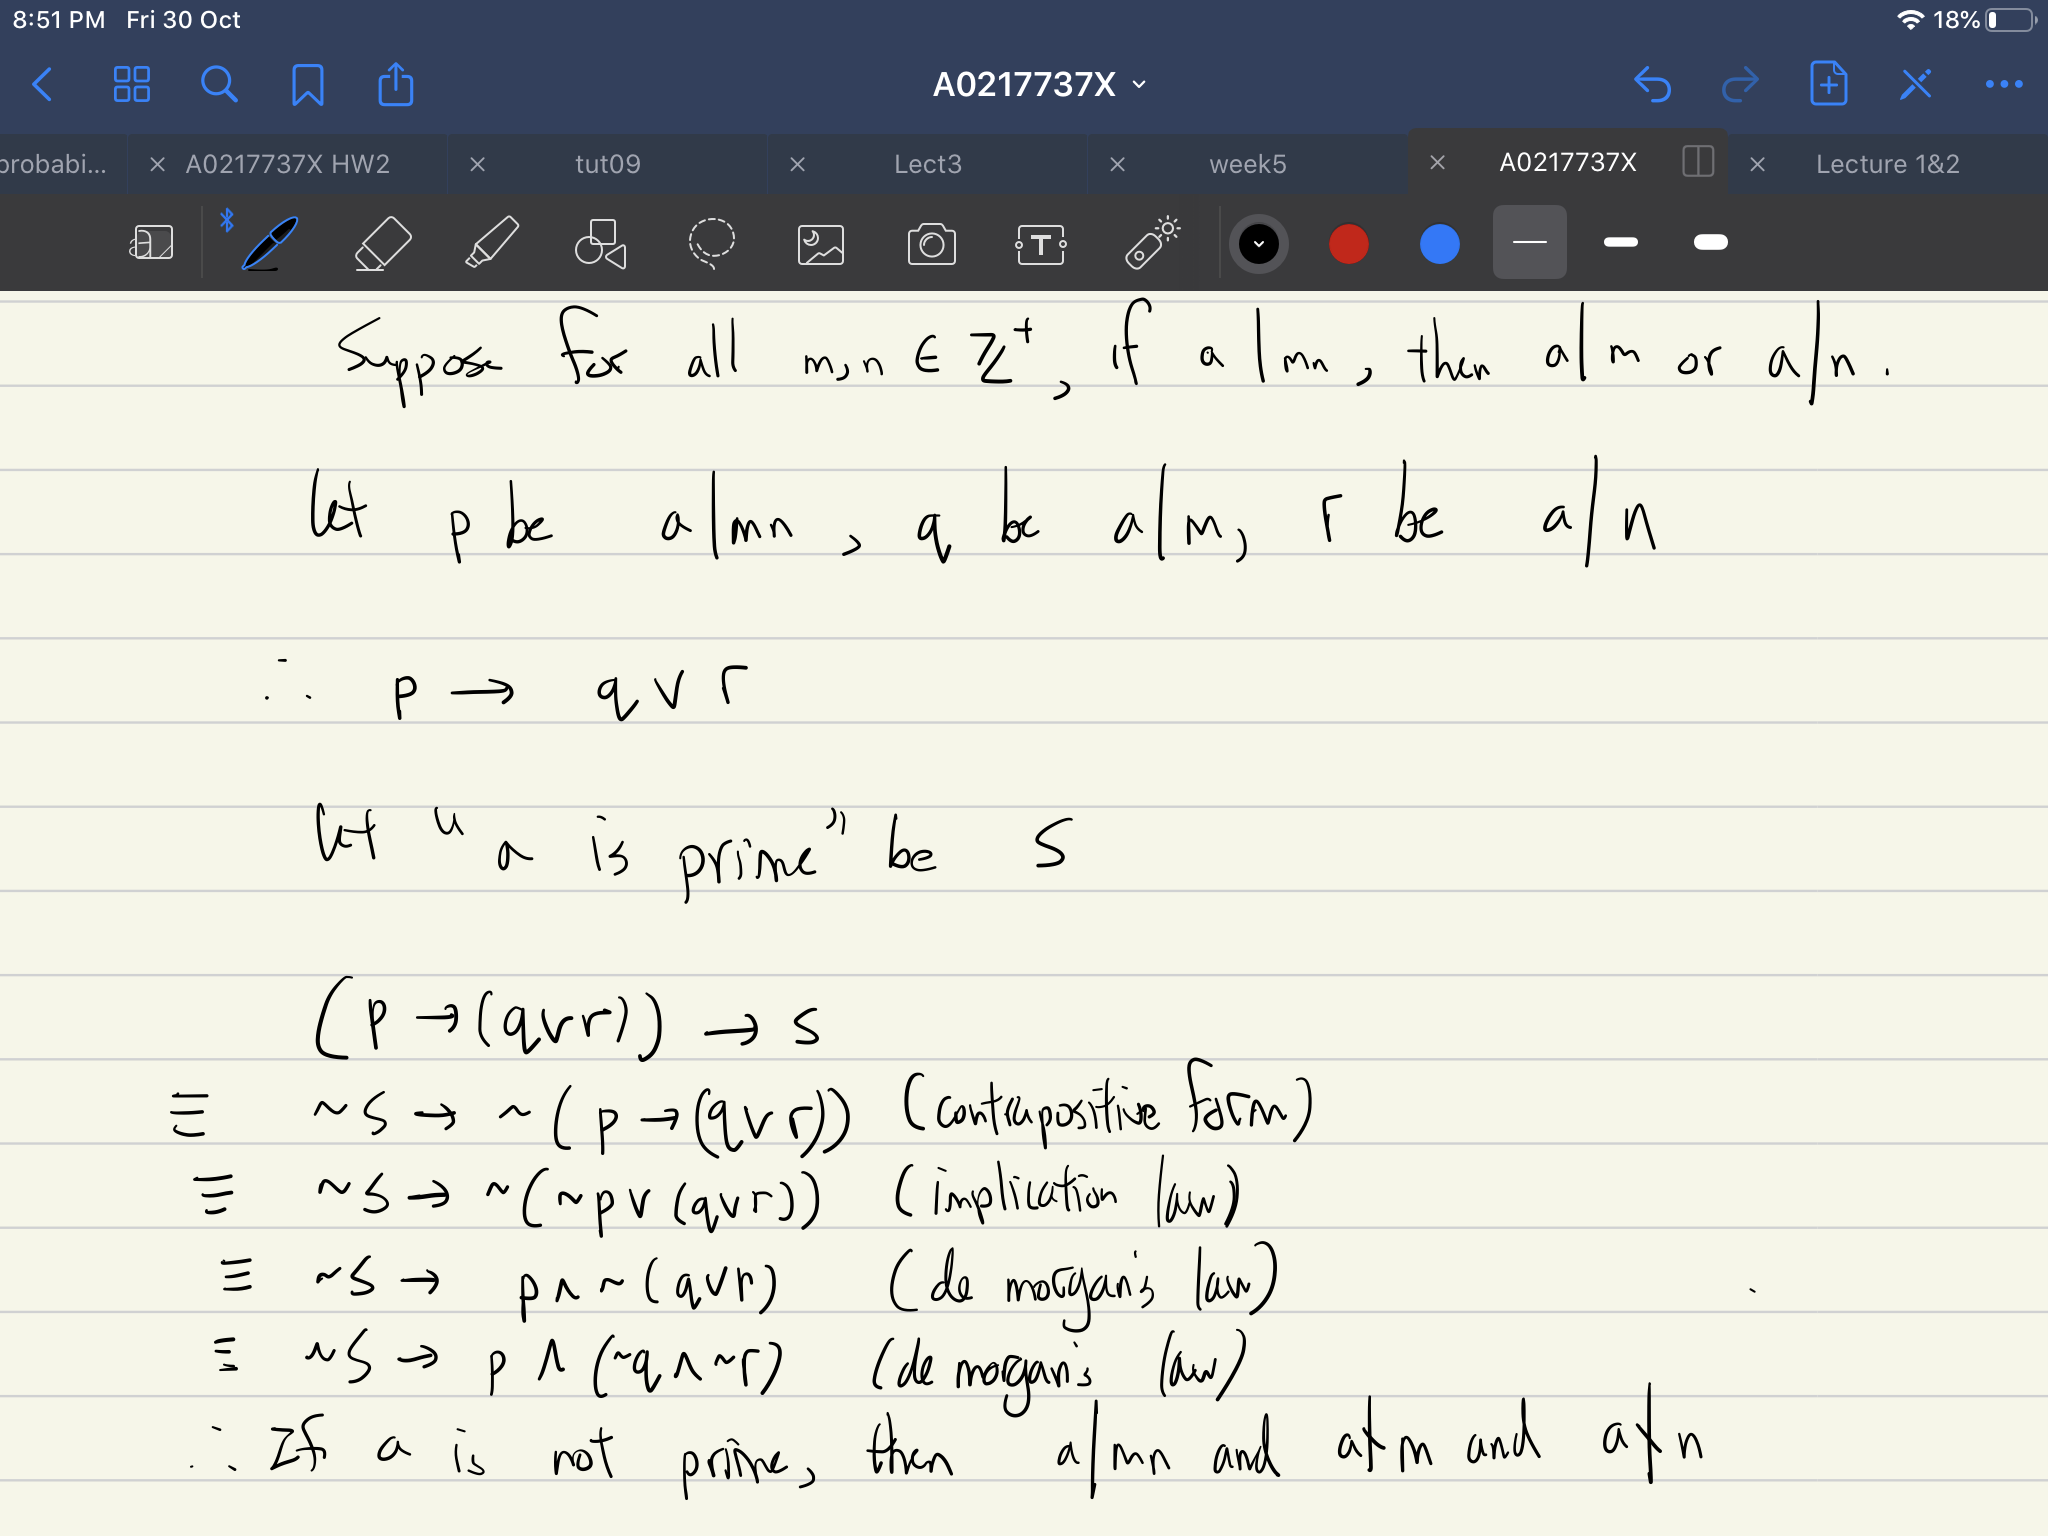 8:51 PM Fri 30 Oct 18%
A0217737X
probabi... A0217737X HW2 tut09 Lect3 week5 A0217737X Lecture 1&2
T
Suppose for all m, n ∈ ℤ⁺, if a | mn, then a | m or a | n.
let p be a | mn, q be a | m, r be a | n
∴ p → q ∨ r
let "a is prime" be S
(p → (q ∨ r)) → s
≡ ~s → ~(p → (q ∨ r)) (contrapositive form)
≡ ~s → ~(~p ∨ (q ∨ r)) (implication law)
≡ ~s → p ∧ ~(q ∨ r) (de morgan's law)
≡ ~s → p ∧ (~q ∧ ~r) (de morgan's law)
∴ If a is not prime, then a | mn and a ∤ m and a ∤ n